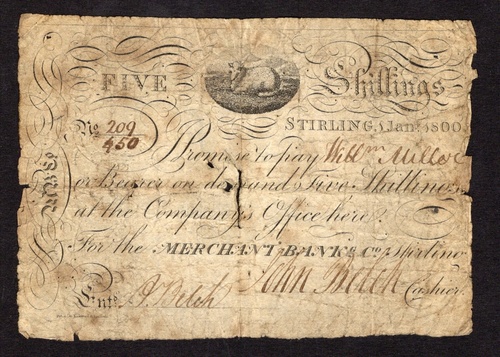 FIVE Shillings
STIRLING, 5 Jany. 1800
No 209/450
Promise to pay Willm Miller
or Bearer on demand Five Shillings
at the Company's Office here.
For the MERCHANT BANKg. Co. of Stirling
John Belch Cashier
Entd. J. Belch